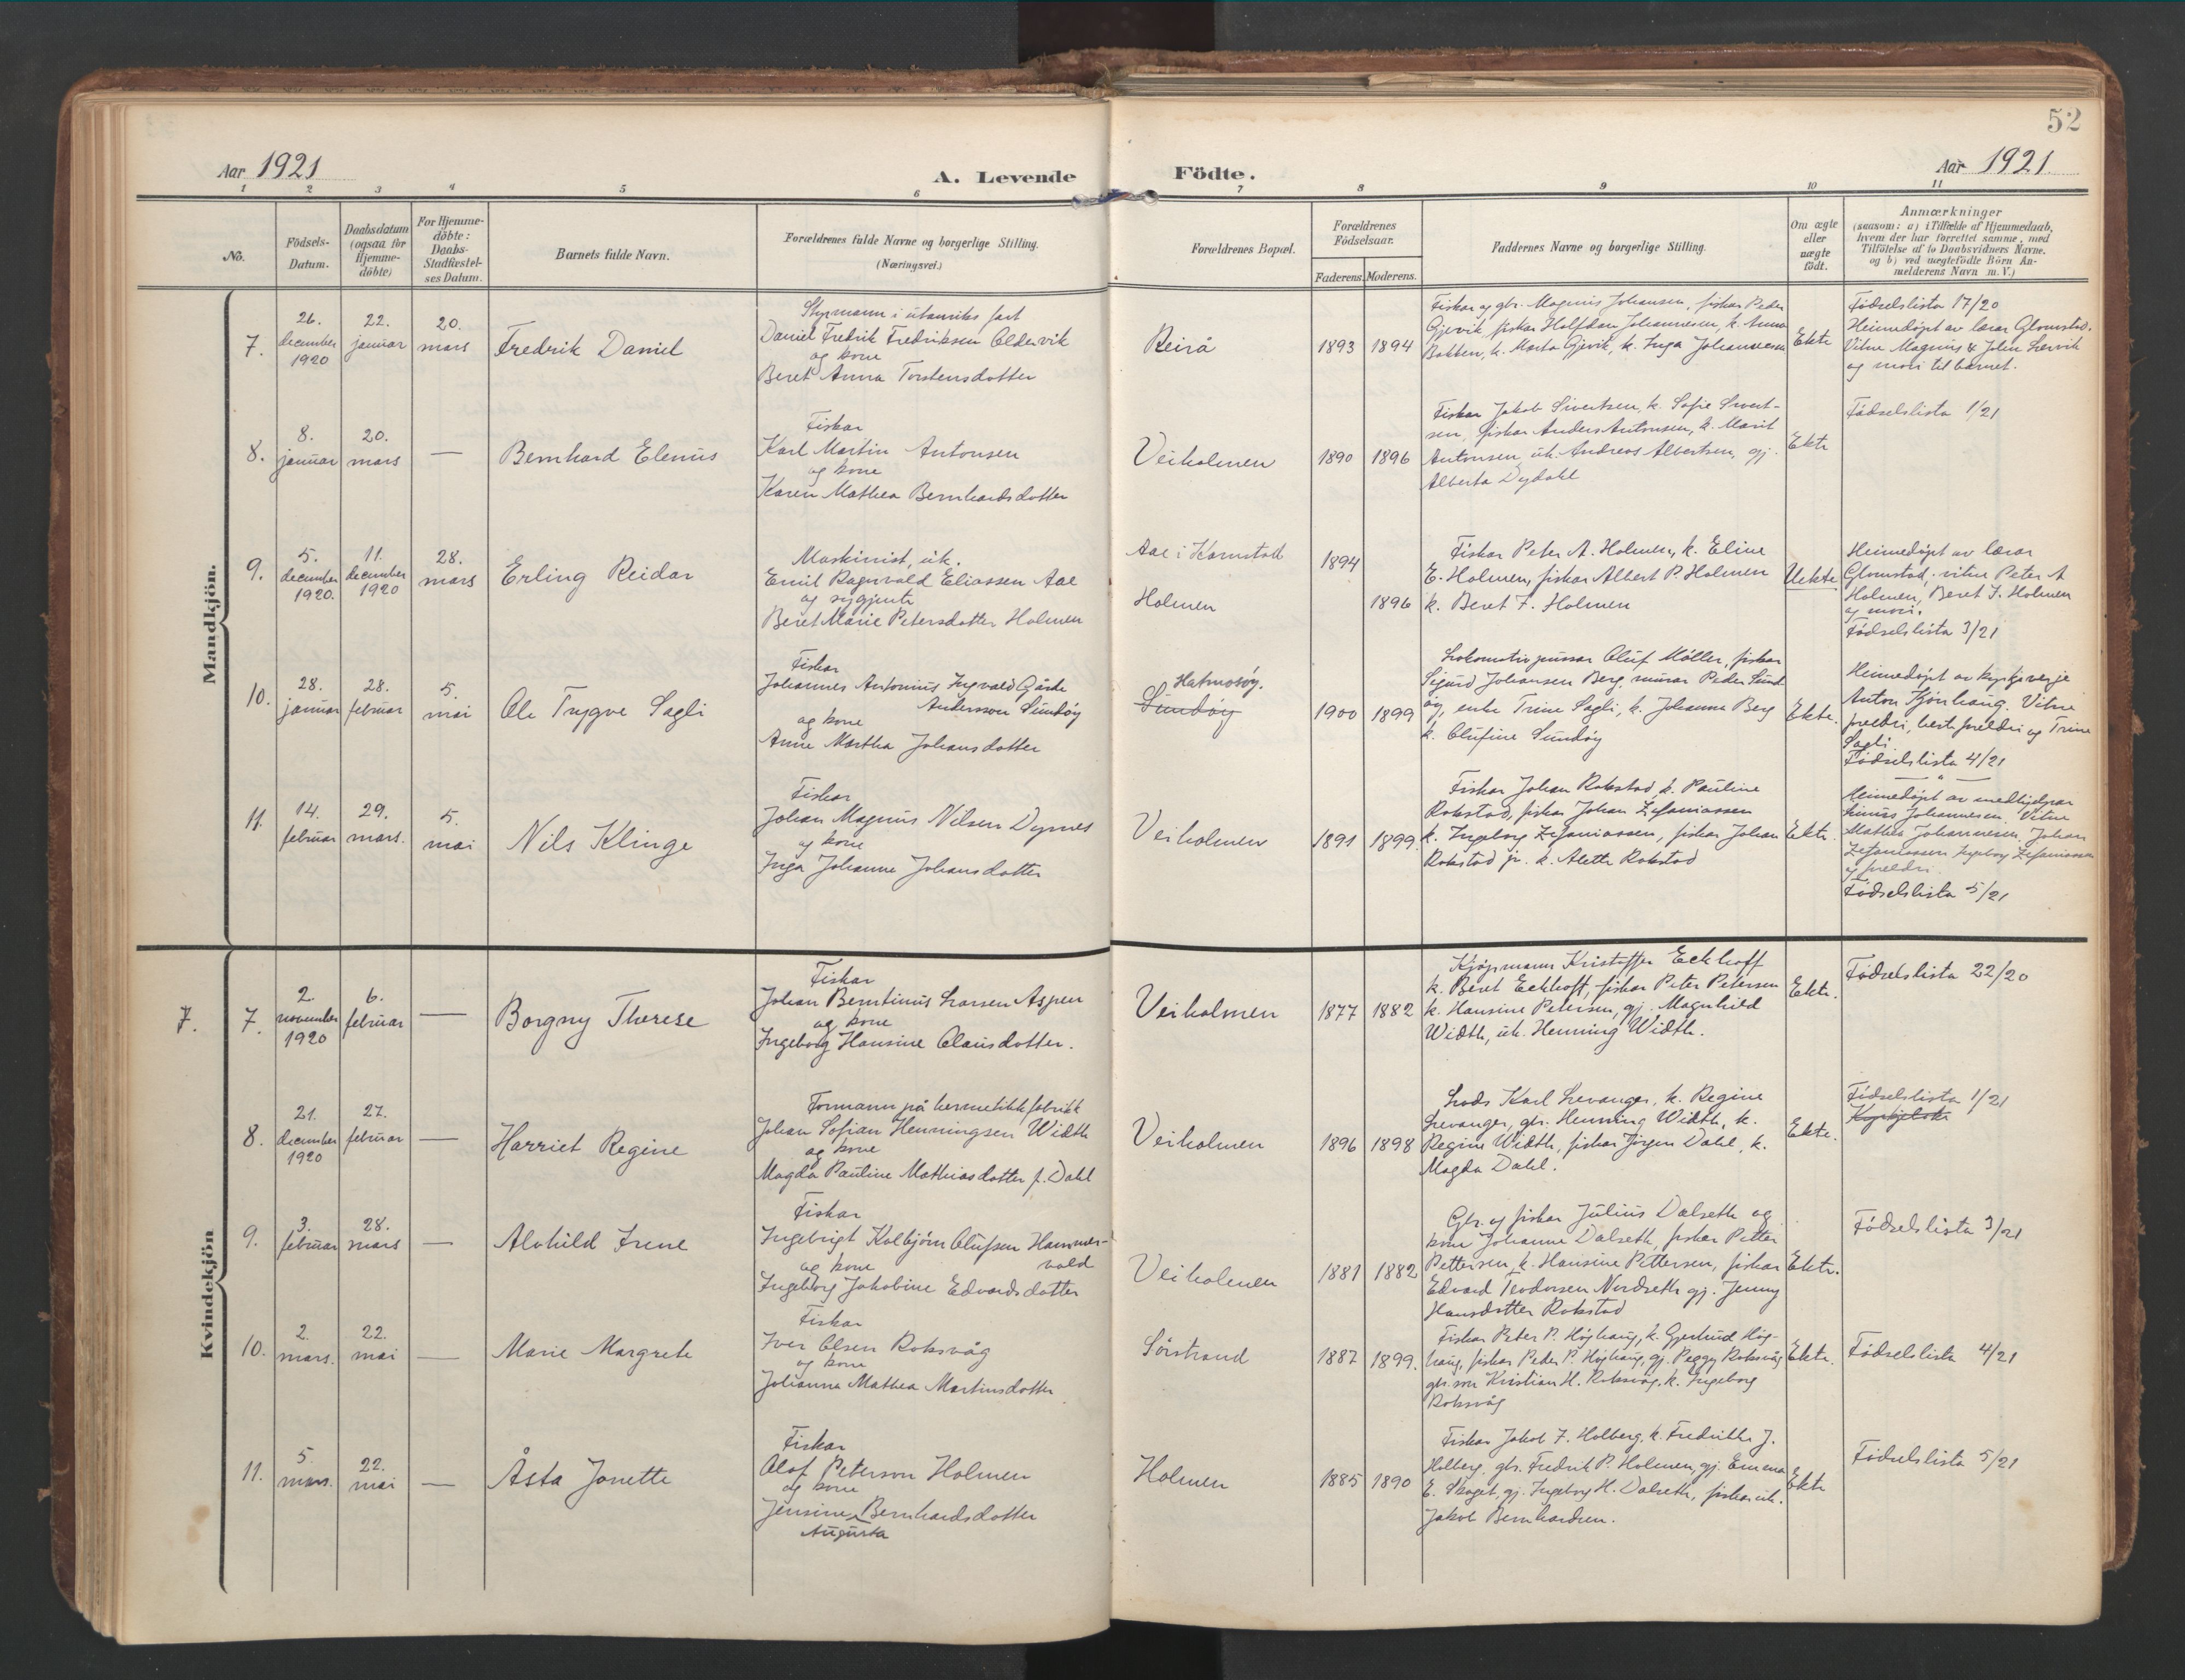 52
Aar 1921
A. Levende
Födte.
Aar 1921.
1 2 3 4 5 6 7 8 9 10 11
No.
Födsels-
Datum.
Daabsdatum
(ogsaa for
Hjemme-
döbte)
For Hjemme-
döbte:
Daabs-
Stadfæstel-
ses Datum.
Barnets fulde Navn.
Forældrenes fulde Navne og borgerlige Stilling.
(Næringsvei.)
Forældrenes Bopæl.
Forældrenes
Födselsaar.
Faderens. Moderens.
Faddernes Navne og borgerlige Stilling.
Om ægte
eller
uægte
födt.
Anmærkninger
(saasom: a) i Tilfælde af Hjemmedaab,
hvem der har forrettet samme, med
Tilföielse af to Daabsvidners Navne.
og b) ved uægtefödte Börn An-
melderens Navn m. V.)
Mandkjön.
7.
26.
december
1920
22.
januar
20.
mars
Fredrik Daniel
Styrmann i utanriks fart
Daniel Fredrik Fredriksen Oldervik
og kone
Beret Anna Torstensdotter
Reirå
1893
1894
Fiskar og gbr. Magnus Johansen, fiskar Peder
Gjevik, fiskar Halfdan Johannesen, k. Anna
Bakken, k. Marta Gjevik, k. Inga Johannesen
Ekte
Fødselslista 17/20
Heimedøpt av lærar Glomstad.
Vitne Magnus & Jolin Lervik
og mori til barnet.
8.
8.
januar
20.
mars
—
Bernhard Elenus
Fiskar
Karl Martin Antonsen
og kone
Karen Mathea Bernhardsdotter
Veiholmen
1890
1896
Fiskar Jakob Sivertsen, k. Sofie Sivert-
sen, fiskar Anders Antonsen, k. Marit
Antonsen, uk. Andreas Albertsen, gj.
Alberta Dydahl
Ekte
Fødselslista 1/21
9.
5.
december
1920.
11.
december
1920
28.
mars
Erling Reidar
Maskinist, uk.
Emil Ragnvald Eliassen Aae
og sygjente
Beret Marie Petersdotter Holmen
Aae i Kornstad
Holmen
1894
1896
Fiskar Peter A. Holmen, k. Eline
E. Holmen, fiskar Albert P. Holmen
k. Beret J. Holmen
Uekte
Heimedøpt av lærar
Glomstad; vitne Peter A
Holmen, Beret J. Holmen
og mori.
Fødselslista 3/21
10.
28.
januar
28.
februar
5.
mai
Ole Trygve Sagli
Fiskar
Johannes Antonius Ingvald Gåste
Andersson Sundøy
og kone
Anne Martha Johansdotter
Hatmosøy.
Sundøy
1900
1899
Lokomotivpussar Oluf Møller, fiskar
Sigurd Johansen Berg, murar Peder Sund
øy, enke Trine Sagli, k. Johanne Berg
k. Olufine Sundøy
Ekte.
Heimedøpt av kyrkjeverje
Anton Kjønhaug. Vitne
foreldri, bestforeldri og Trine
Sagli.
Fødselslista 4/21
— " —
11.
14.
februar
29.
mars.
5.
mai
Nils Klinge
Fiskar
Johan Magnus Nilsen Dyrnes
og kone
Inga Johanne Johansdotter
Veiholmen
1891
1899.
Fiskar Johan Rokstad, k. Pauline
Rokstad, fiskar Johan Zefaniassen
k. Ingeborg Zefaniassen, fiskar Johan
Rokstad jr. k. Alette Rokstad
Ekte.
Heimedøpt av medhjelpar
Linus Johannesen. Vitne
Mathea Johannesen, Johan
Zefaniassen Ingeborg Zefaniassen
og foreldri.
Fødselslista 5/21
Kvindekjön
7.
7.
2.
november
1920
6.
februar
—
Borgny Therese
Fiskar
Johan Berntinus Larsen Aspen
og kone
Ingeborg Hansine Clausdotter.
Veiholmen
1877
1882
Kjøpmann Kristoffer Eckhoff
k. Beret Eckhoff, fiskar Peter Petersen
k. Hansine Petersen, gj. Magnhild
Width, uk. Henning Width.
Ekte.
Fødselslista 22/20
8.
21.
december
1920
27.
februar
—
Harriet Regine
Formann på hermetikkfabrikk
Johan Sofian Henningsen Width
og kone
Magda Pauline Mathiasdotter f. Dahl
Veiholmen
1896
1898
Lods Karl Levanger, k. Regine
Levanger, gbr. Henning Width, k.
Regine Width, fiskar Jørgen Dahl, k.
Magda Dahl.
Ekte.
Fødselslista 1/21
9.
3.
februar
28.
mars
—
Alvhild Irene
Fiskar
Ingebrigt Kolbjørn Olufsen Hammer-
vold
og kone
Ingeborg Jakobine Edvardsdotter
Veiholmen
1881
1882
Gbr. og fiskar Julius Dalseth og
kone Johanne Dalseth, fiskar Petter
Pettersen, k. Hansine Pettersen, fiskar
Edvard Teodorsen Nordseth gj. Jenny
Hansdotter Rokstad
Ekte.
Fødselslista 3/21
10.
2.
mars.
22.
mai
—
Marie Margrete
Fiskar
Iver Olsen Roksvåg
og kone
Johanna Mathea Martinsdotter
Sørstrand
1887
1899.
Fiskar Peter P. Høghaug, k. Gjertrud Høg-
haug, fiskar Peder P. Høghaug, gj. Peggy Roksvåg
gbr. son Kristian H. Roksvåg, k. Ingeborg
Roksvåg
Ekte.
Fødselslista 4/21
11.
5.
mars.
22.
mai
—
Åsta Jonette
Fiskar
Olaf Peterson Holmen
og kone
Jensine Bernhardsdotter
Augusta
Holmen
1885
1890
Fiskar Jakob J. Holberg, k. Fredrikke J.
Holberg, gbr. Fredrik P. Holmen, gj. Emma
E. Skaget, gj. Ingeborg H. Dalseth, fiskar uk.
Jakob Bernhardsen.
Ekte
Fødselslista 5/21